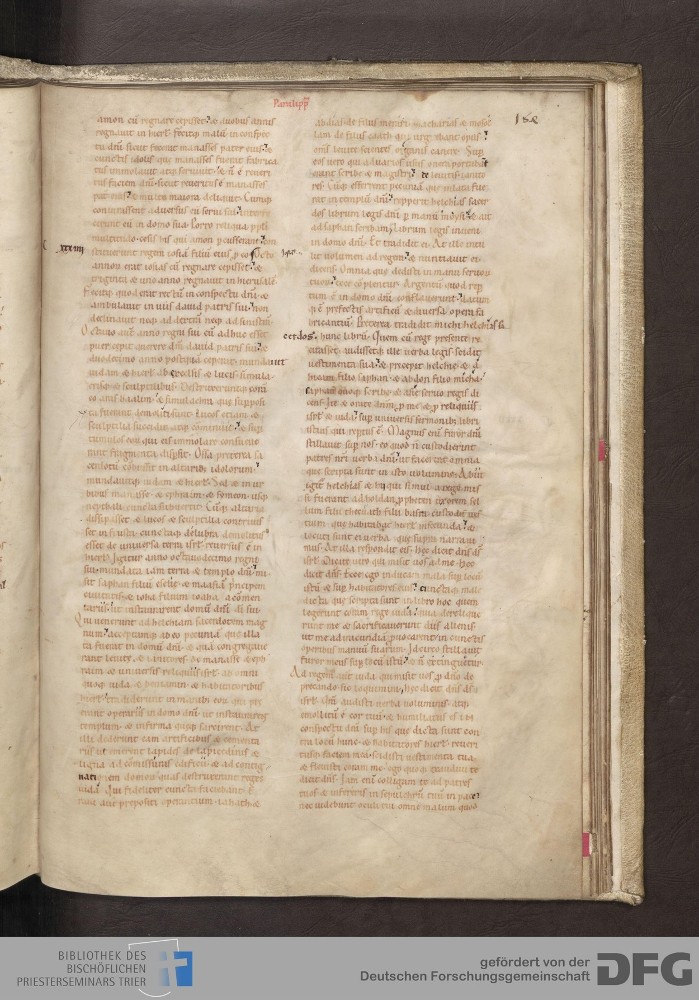 Paralipp̄
184
amon cū regnare cepisset. & duobus annis
regnavit in hierl̄m. fecitq; malū in conspec
tu dn̄i sicut fecerat manasses pater eius. &
cunctis idolis que manasses fuerat fabrica
tus immolavit atq; servivit. & n̄ ē reveri
tus faciem dn̄i. sicut reveritus ē manasses
pat̄ eius. & multo maiora deliquit. Cumq;
coniurassent adversus eū servi sui. interfe
cerunt eū in domo sua. Porro reliqua ppl̄i
multitudo. cesis his qui amon pcusserant. con
xxxiiii
stituerunt regem iosiā filiū eius p eo. Octo
annoꝝ erat iosias cū regnare cepisset. &
triginta & uno anno regnavit in hierusalē.
Fecitq; quod erat rectū in conspectu dn̄i. &
ambulavit in viis david patris sui. non
declinavit neq; ad dextrā neq; ad sinistrā.
Octavo aut̄ anno regni sui cū adhuc esset
puer. cepit querere dm̄ david patris sui. &
duodecimo anno postquā ceperat. mundavit
iudam & hierl̄m ab excelsis & lucis. simula
tumulos eoꝝ qui eis immolare consueve
rant fragmenta dispsit. Ossa pterea sa
cerdotū cōbussit in altaribꝫ idolorum.
mundavitq; iudam & hierl̄m. Sed & in ur
bibus manasse & ephraim & symeon usq;
nepthali cuncta subvertit. Cumq; altaria
dissipasset & lucos & sculptilia contrivis
set in frusta. cunctaq; delubra demolitus
esset de universa terra isrl̄. reversus ē in
hierl̄m. Igitur anno octavodecimo regni
sui. mundata iam terra & templo dn̄i. mi
sit saphan filiū eselie. & maasiā principem
civitatis. & ioha filium ioahaz a cōmen
tariis. ut instaurarent domū dn̄i di sui.
Qui venerunt ad helchiam sacerdotem mag
num. acceptamq; ab eo pecuniā que illa
ta fuerat in domū dn̄i. & quā congregave
rant levite & ianitores de manasse & eph
raim. & universis reliquiis isrl̄. ab omni
quoq; iuda & beniamin & habitatoribus
hierl̄m. tradiderunt in manibꝫ eoꝝ qui pre
erant operariis in domo dn̄i. ut instaurarent
templum. & infirma queq; sarcirent. At
illi dederunt eam artificibus & cementa
riis ut emerent lapides de lapicidinis. &
ligna ad cōmissuras edificii. & ad contig
nationem domoꝝ. quas destruxerant reges
iuda. Qui fideliter cuncta faciebant. E
rant aut̄ prepositi operantium. iahath &
abdias de filiis merari. zacharias & mosol
lam de filiis caath. qui urgebant opus.
om̄s levite scientes organis canere. Sup
eos vero qui ad diversos usus onera portabant
erant scribe & magistri de levitis. ianito
res. Cūq; efferrent pecuniā que inlata fue
rat in templū dn̄i. repperit helchias sacer
dos librum legis dn̄i p manū moysi. & ait
ad saphan scribam. Librum legis inveni
in domo dn̄i. Et tradidit ei. At ille intu
lit volumen ad regem. & nuntiavit ei
dicens. Omnia que dedisti in manu servoꝝ
tuoꝝ. ecce cōplentur. Argentū quod rep
tum ē in domo dn̄i conflaverunt. datum
q; ē prefectis artificū & diversa opera fa
bricantiū. Preterea tradidit michi helchias sa
cerdos. hunc librū. Quem cū rege presente re
citasset. audissetq; ille verba legis. scidit
vestimenta sua. & precepit helchie & a
hicam filio saphan. & abdon filio micha.
saphan quoq; scribe. & asie servo regis di
cens. Ite & orate dnm̄ p me & p reliquiis
isrl̄ & iuda. sup universis sermonibꝫ libri
istius qui reptus ē. Magnus enī furor dn̄i
stillavit sup nos. eo quod n̄ custodierint
patres nr̄i verba dn̄i. ut facerent omnia
que scripta sunt in isto volumine. Abiit
igit̄ helchias & hii qui simul a rege mis
si fuerant. ad holdan pphetem uxorem sel
lum filii thecuath filii hasra custodis ves
tium. que habitabat hierl̄m in secunda. &
locuti sunt ei verba que supra narravi
mus. At illa respondit eis. Hec dicit dn̄s ds̄
isrl̄. Dicite viro qui misit vos ad me. Hec
dicit dn̄s. Ecce ego inducam mala sup locū
istū & sup habitatores eius. cunctaq; male
dicta que scripta sunt in libro hoc. quem
legerunt coram rege iuda. quia derelique
runt me & sacrificaverunt diis alienis.
ut me ad iracundiā pvocarent in cunctis
operibus manuū suarum. Idcirco stillavit
furor meus sup locū istū. & n̄ extinguetur.
Ad regem aut̄ iuda qui misit vos p dn̄o de
precando. sic loquimini. Hec dicit dn̄s ds̄
isrl̄. Qm̄ audisti verba voluminis. atq;
emollitū ē cor tuū. & humiliatus es in
conspectu dn̄i sup his que dicta sunt con
tra locū hunc & habitatores hierl̄m. reveri
tusq; faciem meā. scidisti vestimenta tua.
& flevisti coram me. ego quoq; exaudivi te
dicit dn̄s. Iam enī colligam te ad patres
tuos & infereris in sepulchrū tuū in pace.
nec videbunt oculi tui omne malum quod
BIBLIOTHEK DES
BISCHÖFLICHEN
PRIESTERSEMINARS TRIER
gefördert von der
Deutschen Forschungsgemeinschaft
DFG